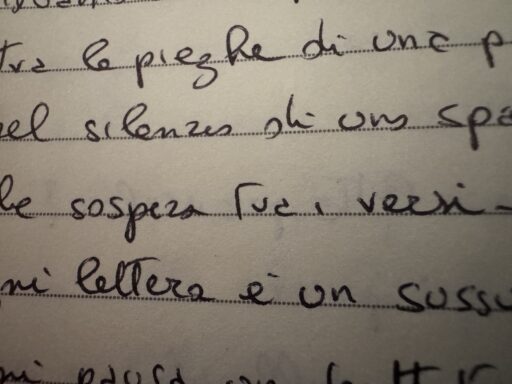 tra le pieghe di una p
nel silenzio di uno spa
he sospeza tra i versi -
gni lettera è un sussu